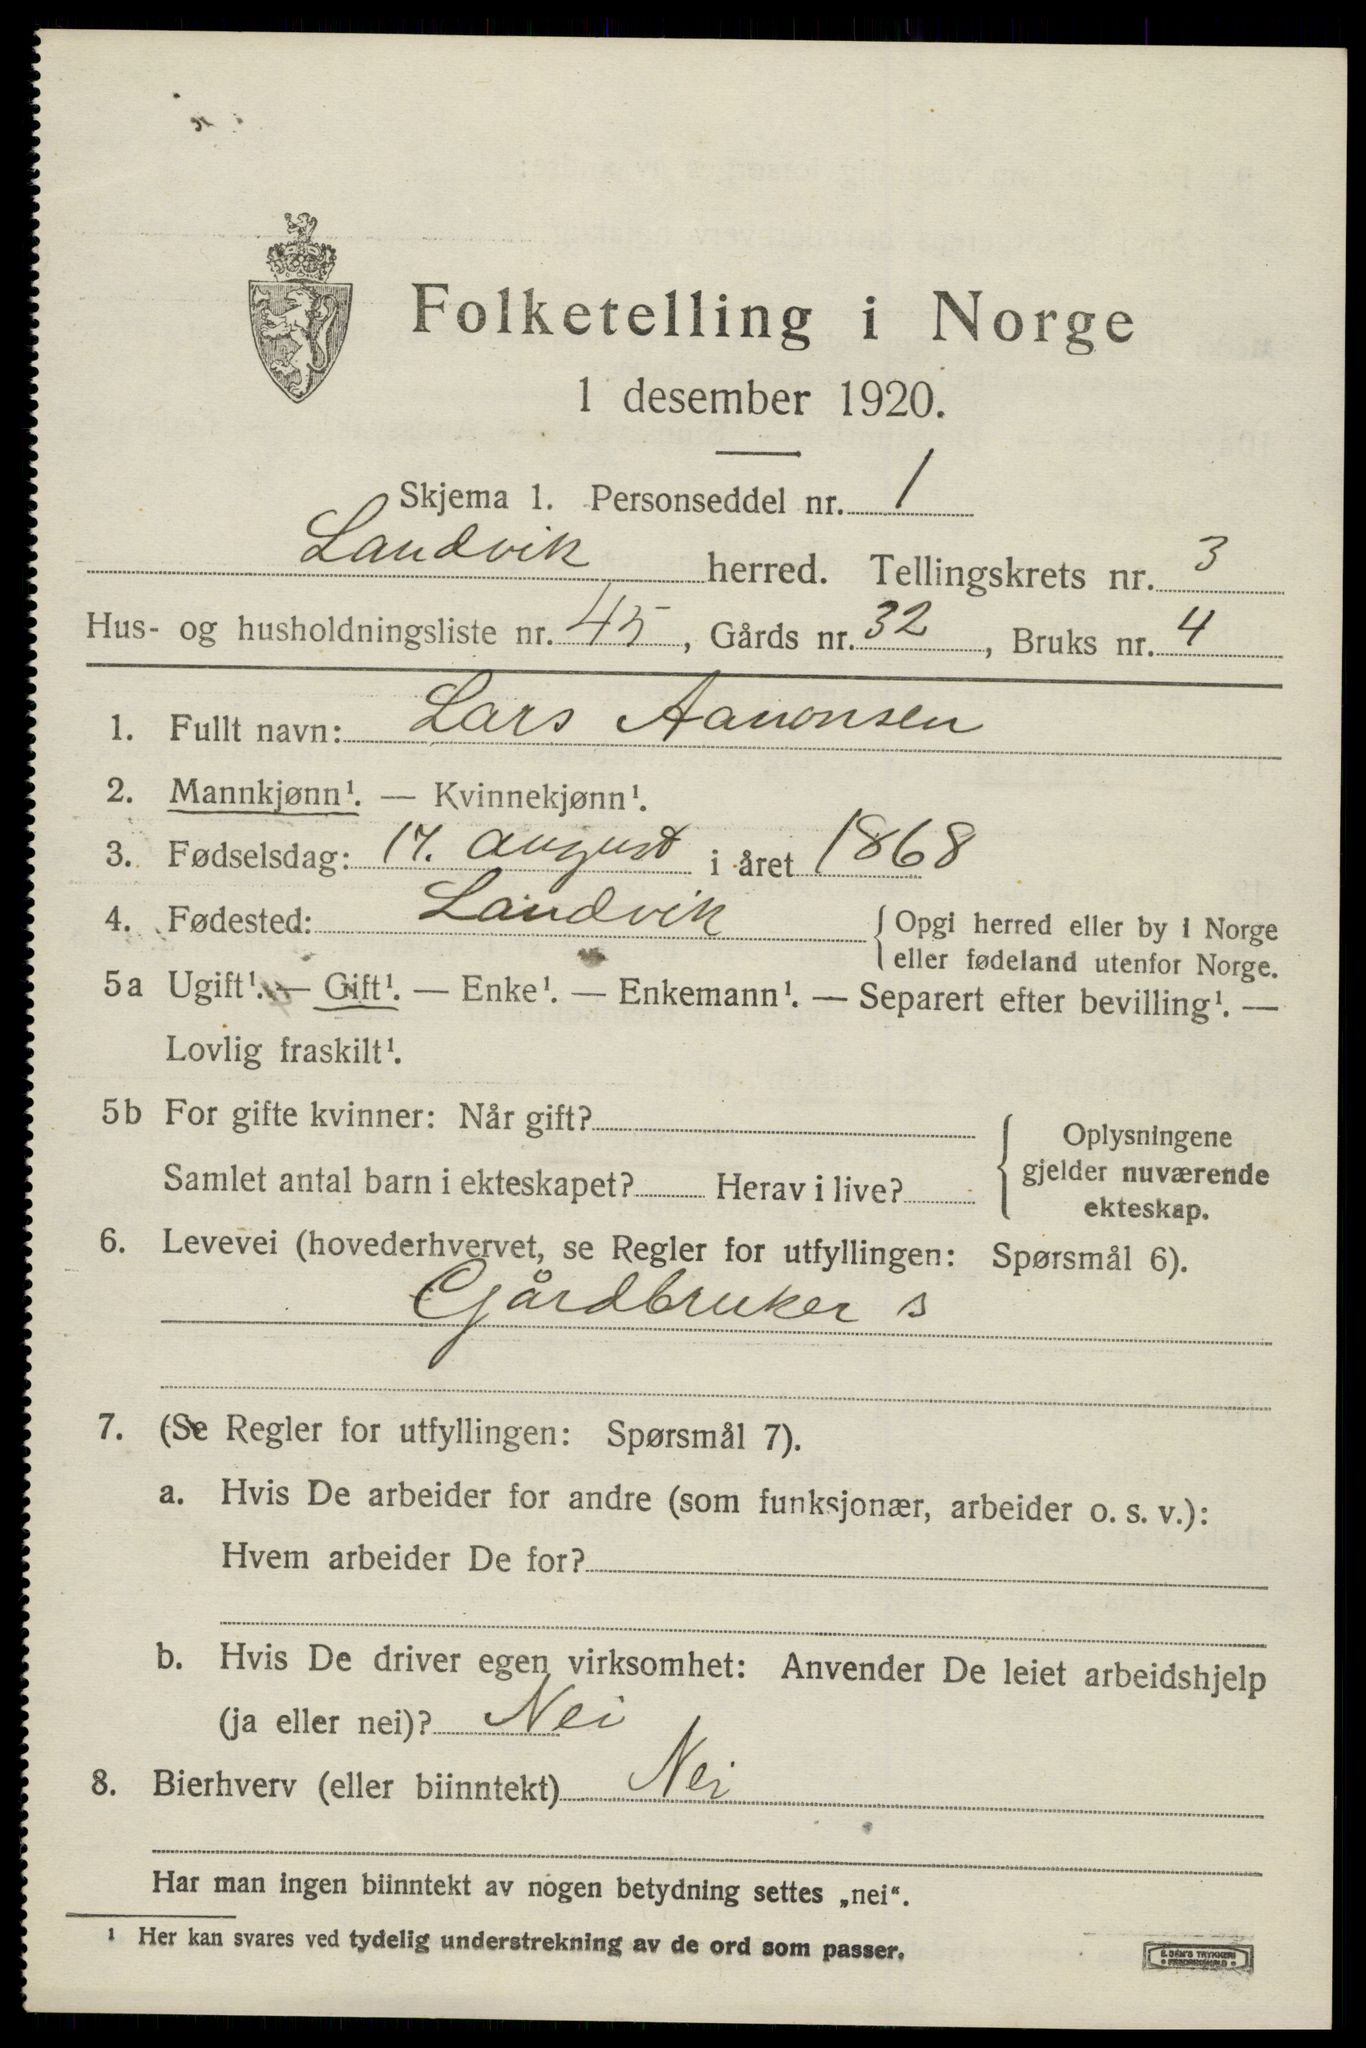 Folketelling i Norge
1 desember 1920.
Skjema 1. Personseddel nr. 1
Landvik herred. Tellingskrets nr. 3
Hus- og husholdningsliste nr. 45, Gårds nr. 32, Bruks nr. 4
1. Fullt navn: Lars Aanonsen
2. Mannkjønn¹. — Kvinnekjønn¹.
3. Fødselsdag: 17. august i året 1868
4. Fødested: Landvik {Opgi herred eller by i Norge
eller fødeland utenfor Norge.
5a Ugift¹. — Gift¹. — Enke¹. — Enkemann¹. — Separert efter bevilling¹. —
Lovlig fraskilt¹.
5b For gifte kvinner: Når gift?
Samlet antal barn i ekteskapet? Herav i live?
Oplysningene
gjelder nuværende
ekteskap.
6. Levevei (hovederhvervet, se Regler for utfyllingen: Spørsmål 6).
Gjårdbruker s
7. (Se Regler for utfyllingen: Spørsmål 7).
a. Hvis De arbeider for andre (som funksjonær, arbeider o. s. v.):
Hvem arbeider De for?
b. Hvis De driver egen virksomhet: Anvender De leiet arbeidshjelp
(ja eller nei)? Nei
8. Bierhverv (eller biinntekt) Nei
Har man ingen biinntekt av nogen betydning settes „nei“.
¹ Her kan svares ved tydelig understrekning av de ord som passer.